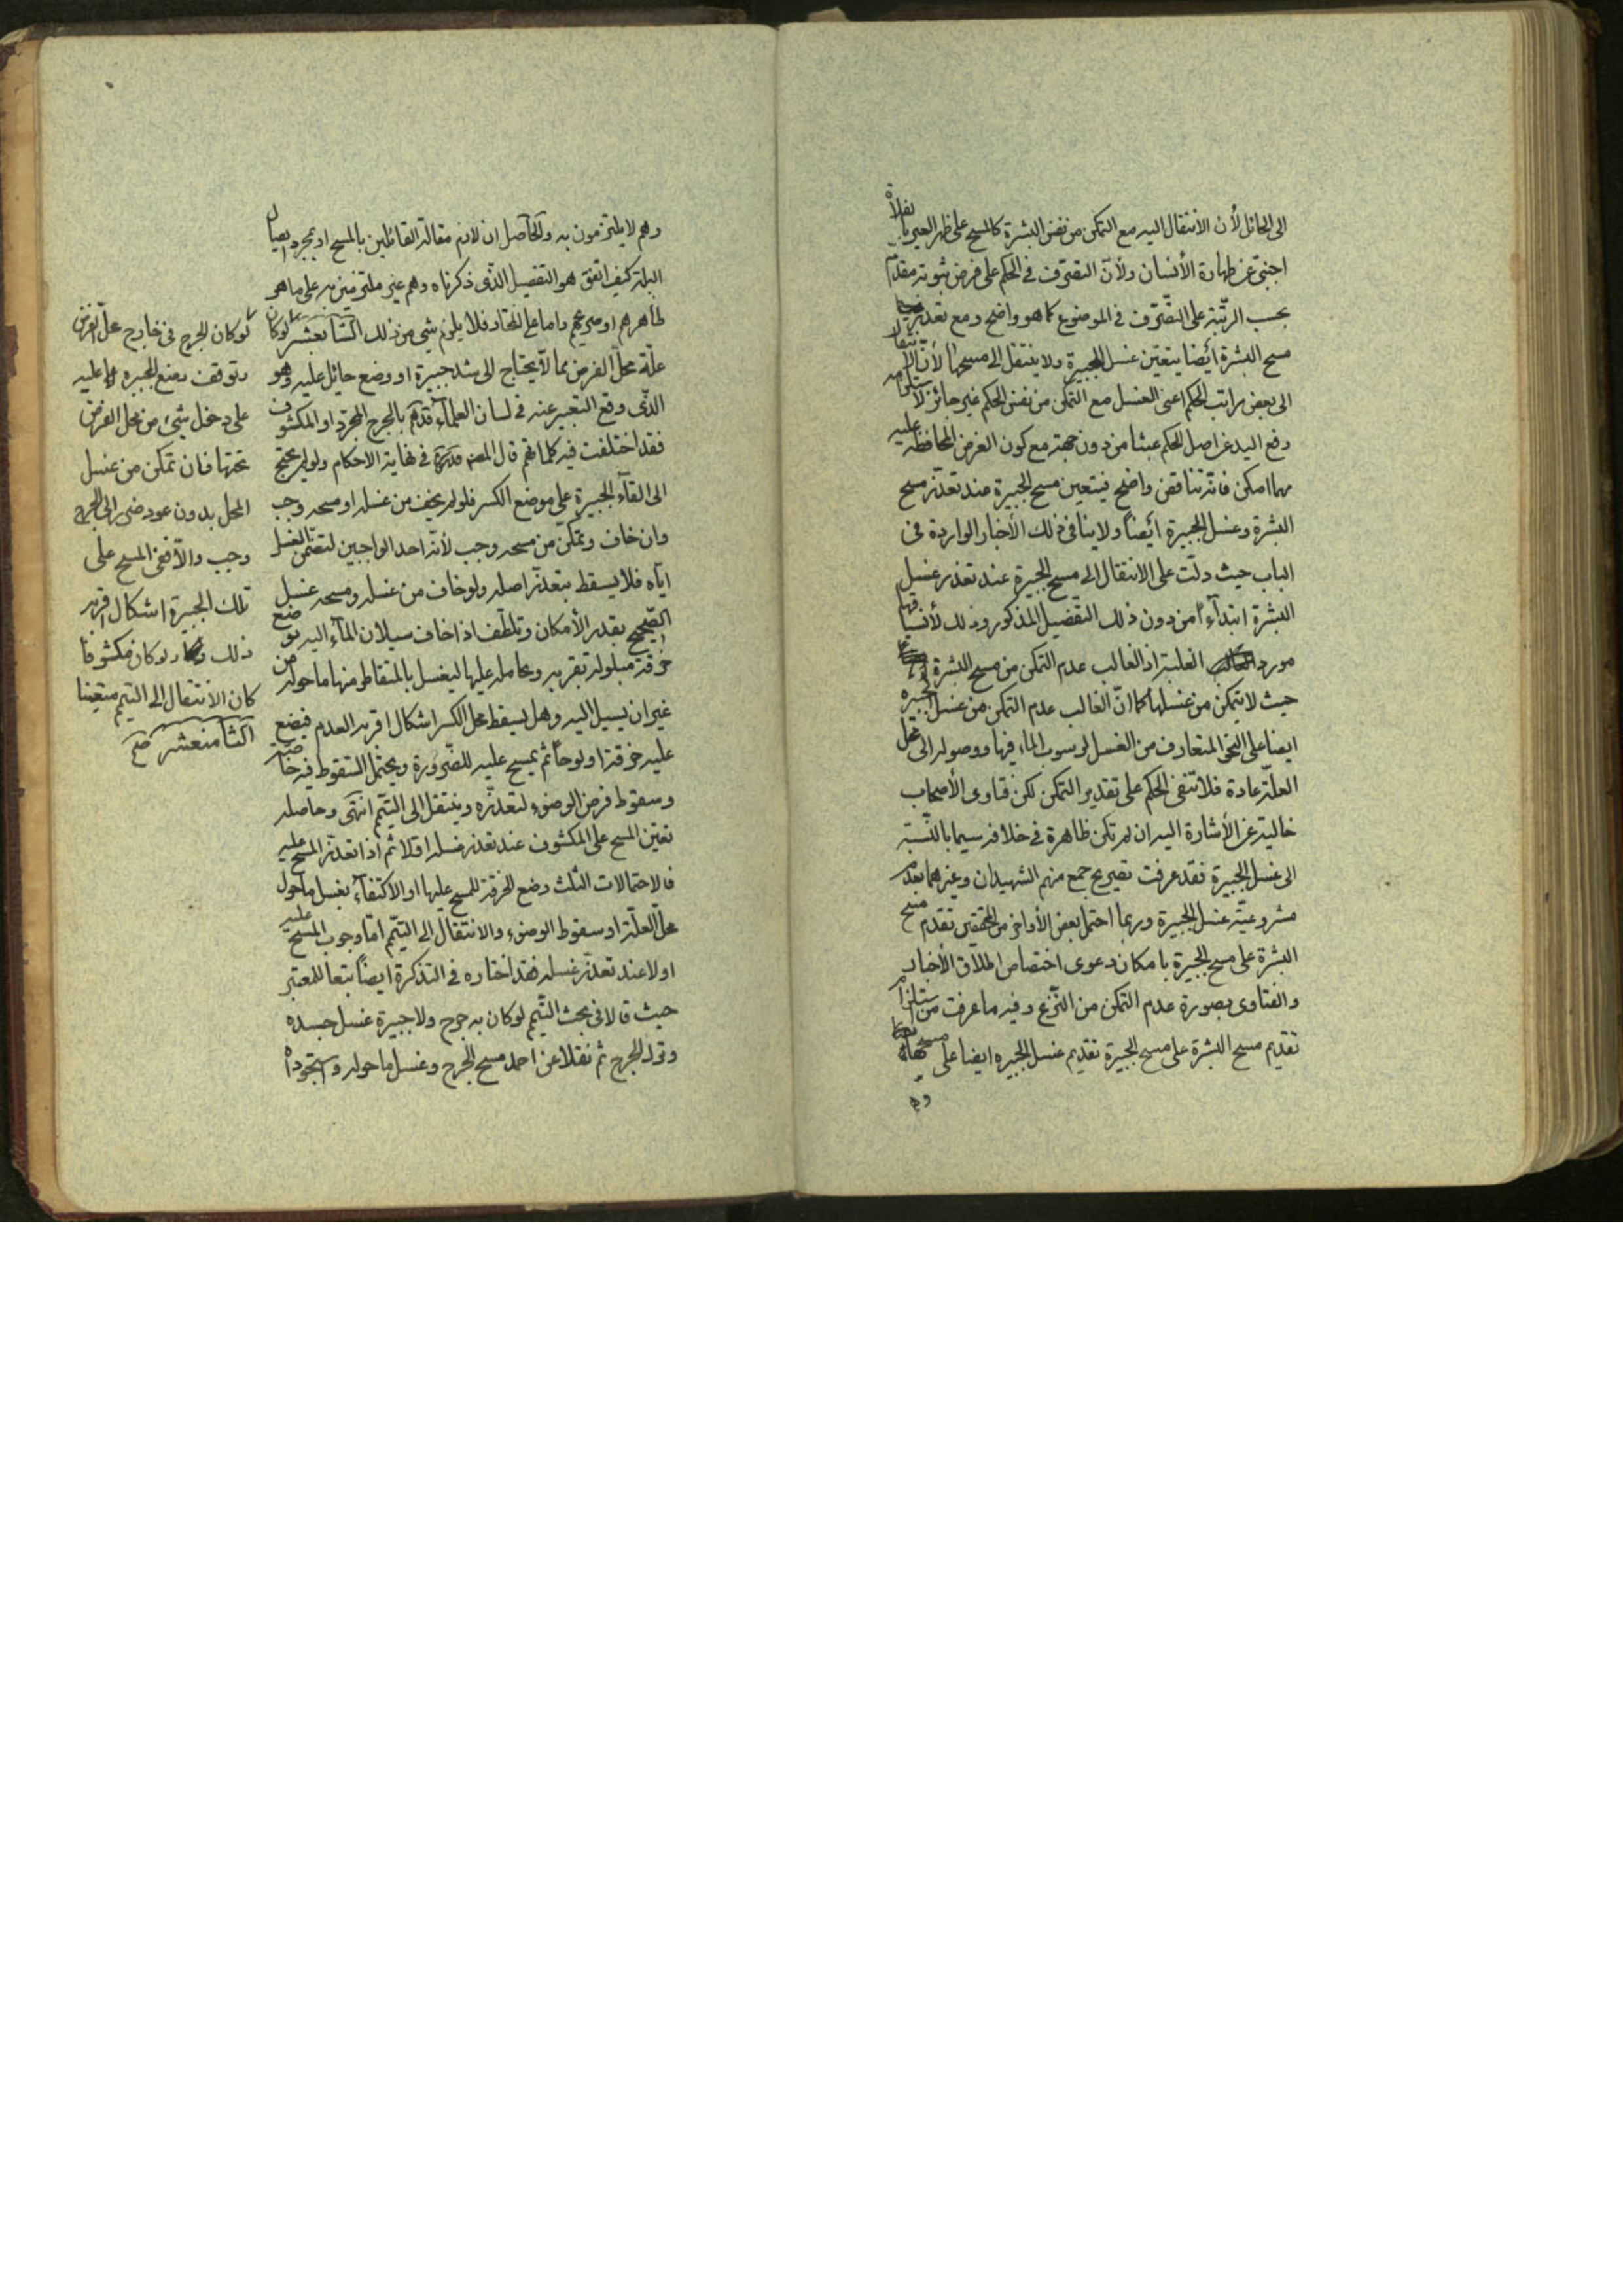 الى الحائل لأن الانتقال اليه مع التمكن من نفس البشرة كالمسح على ظهر العير بل بفلاة
اجنبيّ عن طهارة الأنسان ولأنّ التصرّف في الحكم على فرض ثبوته مقدّم
بحسب الرتبة على التصّرف في الموضوع كما هو واضح ومع تعذر
مسح البشرة أيضا يتعيّن غسل الجبيرة ولا ينتقل الى مسحها لأنّ الانتقال
الى بعض مراتب الحكم اعنى الغسل مع التمكن من نفس الحكم غير جائز لاستلزامه
رفع اليد عن اصل الحكم عبثا من دون جهة مع كون الغرض المحافظة عليه
مهما امكن فانّه تناقض واضح فيتعين مسح الجبيرة عند تعذّر مسح
البشرة وغسل الجبيرة أيضاً ولا ينافي ذلك الأخبار الواردة فى
الباب حيث دلّت على الانتقال الى مسح الجبيرة عند تعذر غسل
البشرة ابتدآءً من دون ذلك التفصيل المذكور وذلك لأنسياقها
مورد الغلبة اذ الغالب عدم التمكن من مسح البشرة
حيث لا يتمكن من غسلها كما انّ الغالب عدم التمكن من غسل الجبيرة
ايضا على النحو المتعارف من الغسل لرسوب الماء فيها ووصوله الى محل
العلّة عادة فلا تنفى الحكم على تقدير التمكن لكن فتاوى الأصحاب
خالية عن الأشارة اليه ان لم تكن ظاهرة في خلافه سيما بالنّسبة
الى غسل الجبيرة فقد عرفت تصريح جمع منهم الشهيدان وغيرهما بعدم
مشروعيّة غسل الجبيرة وربما احتمل بعض الأواخر من المحققين تقدم مسح
البشرة على مسح الجبيرة بامكان دعوى اختصاص اطلاق الأخبار
والفتاوى بصورة عدم التمكن من النّزع وفيه ما عرفت من استلزام
تقديم مسح البشرة على مسح الجبيرة تقديم غسل الجبيره ايضا على مسحها
وهم
وهم لا يلتزمون به والحاصل ان لازم مقالة القائلين بالمسح او بمجرد ايصال
البلة كيف اتفق هو التفصيل الذّى ذكرناه وهم غير ملتزمين به على ما هو
ظاهرهم او صريحهم واما على المختار فلا يلزم شى من ذلك السّابعشر لو كان
علّة محلّ الفرض بما لا يحتاج الى شد جبيرة او وضع حائل عليه وهو
الذّى وقع التعبير عنه في لسان العلمآء قدهم بالجرح المجرّد او المكشوف
فقد اختلفت فيه كلماتهم قال المصنف قدسره فى نهاية الاحكام ولو لم يحتج
الى القآء الجبيرة على موضع الكسر فلو لم يخف من غسله او مسحه وجب
وان خاف وتمكّن من مسحه وجب لأنّه احد الواجبين لتضمّن الغسل
ايّاه فلا يسقط بتعذّر اصله ولو خاف من غسله ومسحه غسل
الصّحيح بقدر الأمكان وتلطّف اذا خاف سيلان المآء اليه بوضع
خرقة مبلولة بقربه وتحامله عليها ليغسل بالمتقاطر منها ما حوله من
غير ان يسيل اليه وهل يسقط محل الكسر اشكال اقربه العدم فيضع
عليه خرقة او لوحاً ثم يمسح عليه للضّرورة ويحتمل السّقوط فيه خاصّة
وسقوط فرض الوضوء لتعذّره وينتقل الى التيّمم انتهى وحاصله
تعيّن المسح على المكشوف عند تعذر غسله اوّلا ثم اذا تعذّر المسح عليه
فالاحتمالات الثلث وضع الخرقة للمسح عليها او الاكتفآء بغسل ما حول
محلّ العلّة او سقوط الوضوء والانتقال الى التيّمم امّا وجوب المسح عليه
اولا عند تعذّر غسله فقد اختاره فى التذكرة ايضاً تبعا للمعتبر
حيث قالا فى بحث التّيمم لو كان به جرح ولا جبيرة غسل جسده
وترك الجرح ثم نقلا عن احمد مسح الجرح وغسل ما حوله واستجوداه
لو كان الجرح فى خارج محلّ الفرض
وتوقف وضع الجبيره عليه
على دخل شئ من محل الفرض
تحتها فان تمكن من غسل
المحل بدون عود ضرر الى الجرح
وجب والّا ففى المسح على
تلك الجبيرة اشكال اقربه
ذلك ولو كان مكشوفا
كان الانتقال الى التيمم متعيّنا
الثّامنعشر صح